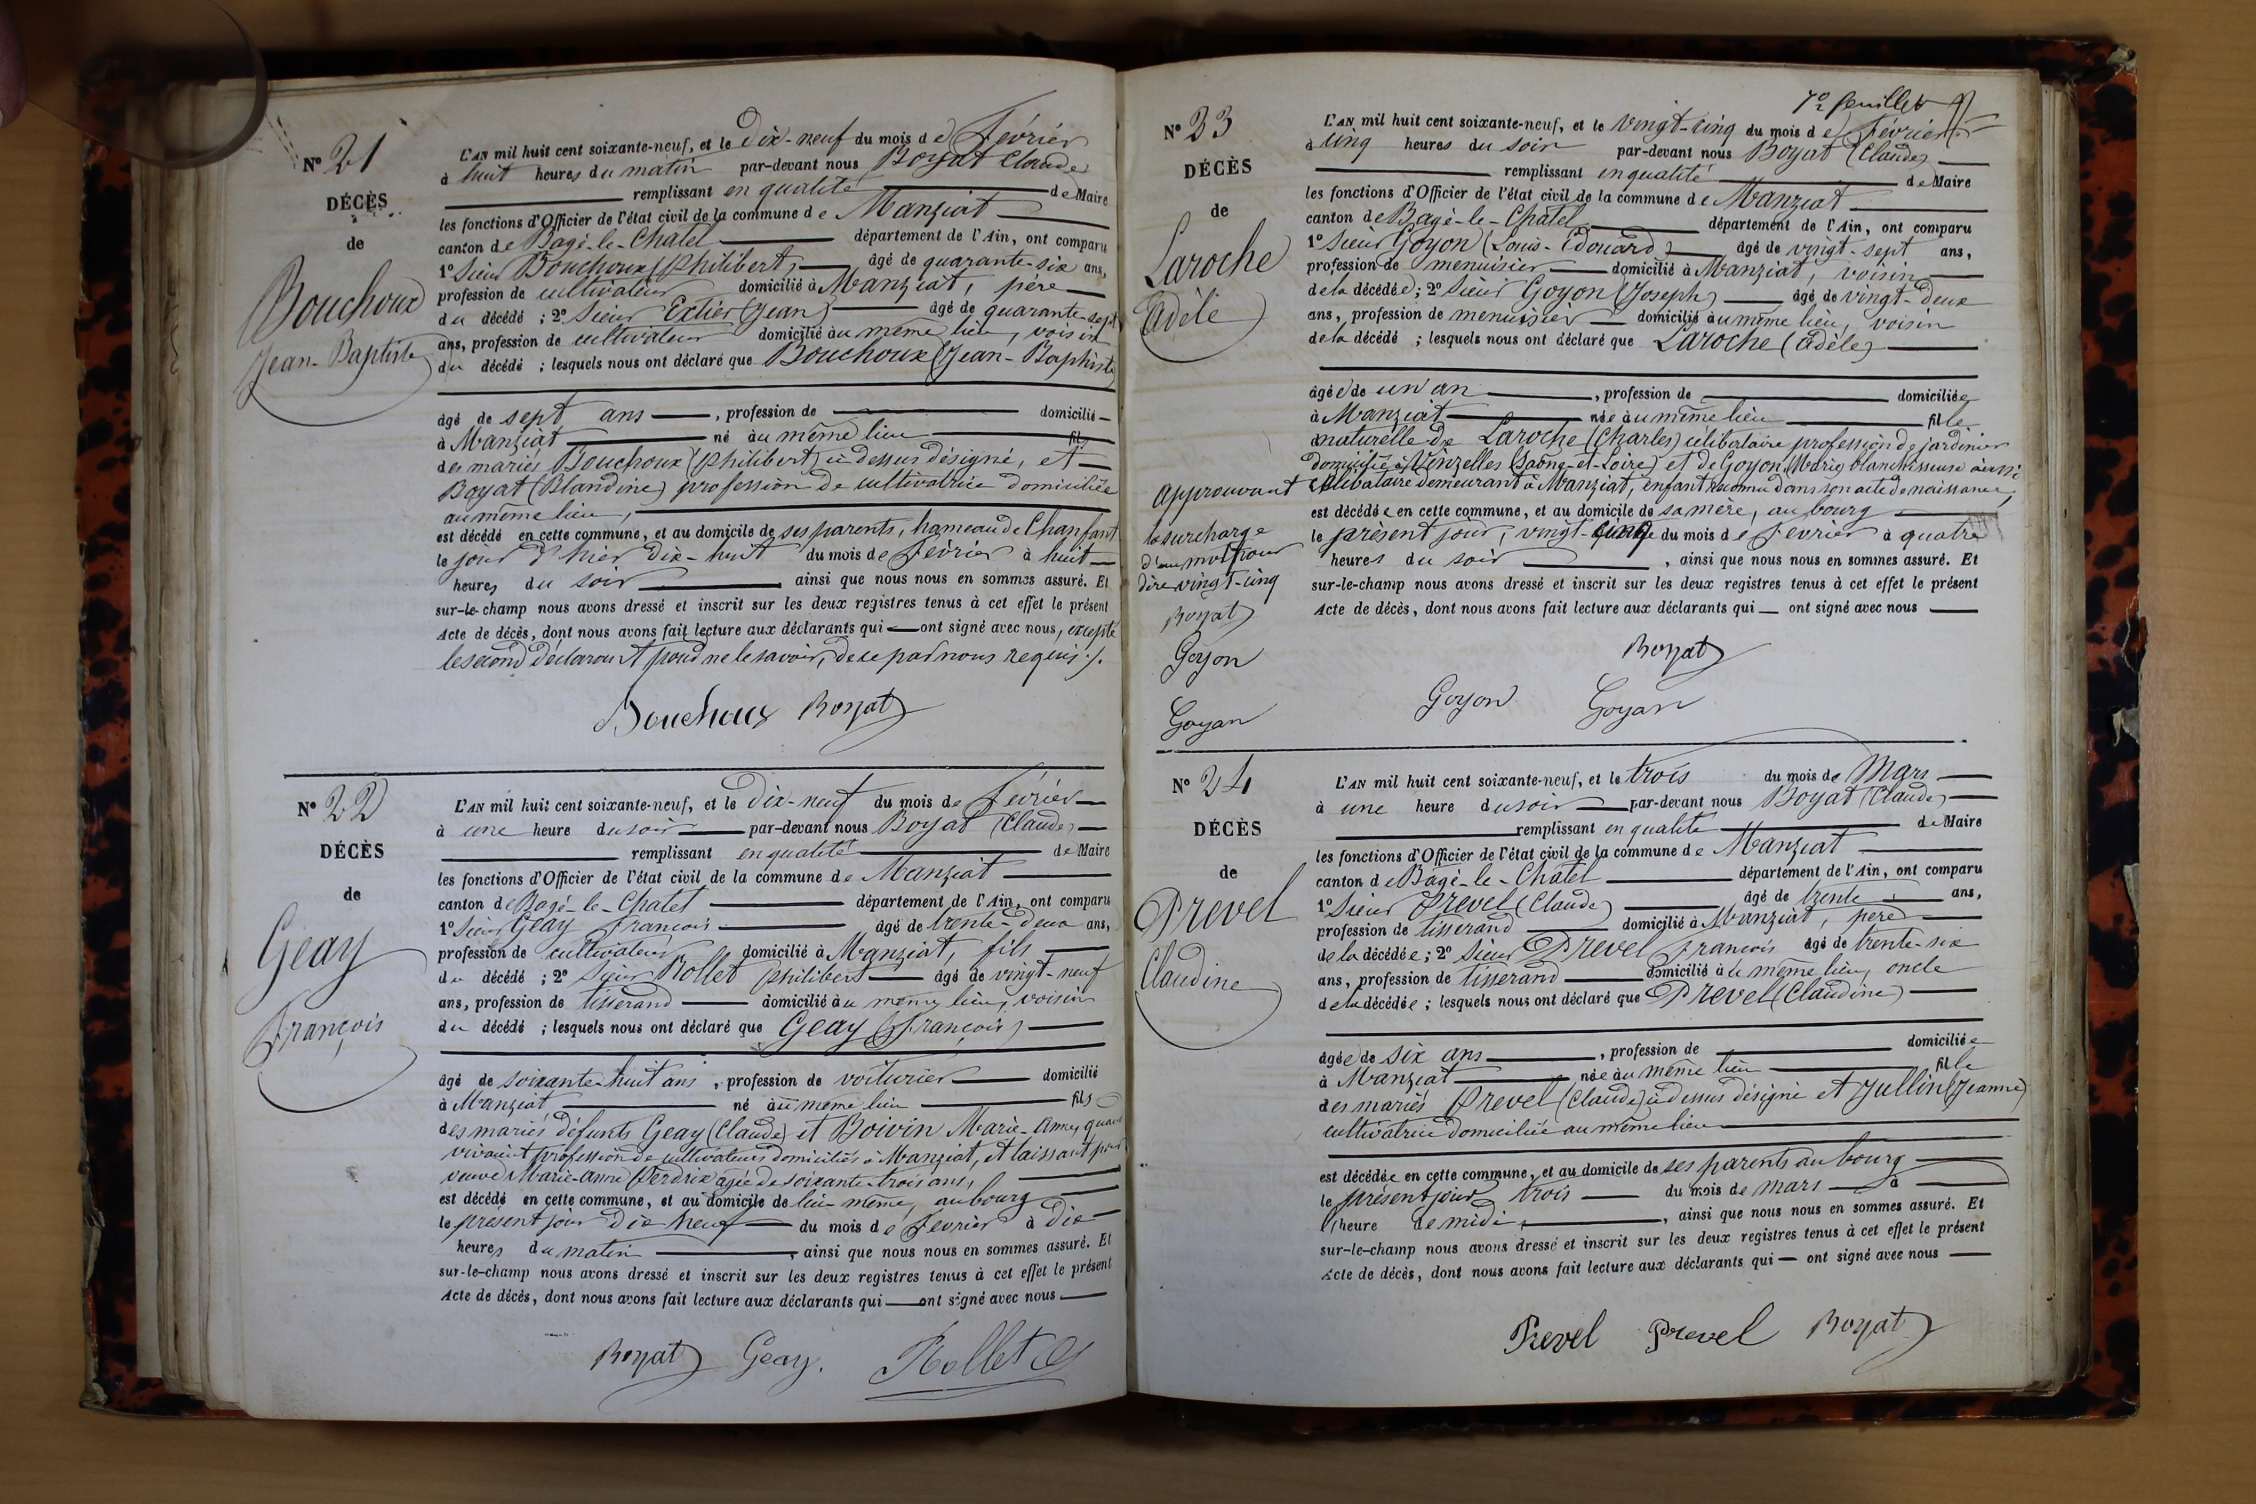 N° 21
DÉCÈS
de
Bouchoux
Jean-Baptiste
L'AN mil huit cent soixante-neuf, et le Dix-neuf du mois de Février
à huit heures du matin par-devant nous Boyat Claude
remplissant en qualité de Maire
les fonctions d'Officier de l'état civil de la commune de Manziat
canton de Bagé-le-Chatel département de l'Ain, ont comparu
1° Sieur Bouchoux (Philibert) âgé de quarante-six ans,
profession de cultivateur domicilié à Manziat, père
du décédé ; 2° Sieur Extier (Jean) âgé de quarante-sept
ans, profession de cultivateur domicilié au même lieu, voisin
du décédé ; lesquels nous ont déclaré que Bouchoux (Jean-Baptiste
âgé de sept ans , profession de domicilié
à Manziat né au même lieu fils
des mariés Bouchoux (Philibert) ci dessus désigné, et
Boyat (Blandine) profession de cultivatrice domiciliée
au même lieu,
est décédé en cette commune, et au domicile de ses parents, hameau de Chanfant
le jour d'hier dix-huit du mois de Février à huit
heures du soir ainsi que nous nous en sommes assuré. Et
sur-le-champ nous avons dressé et inscrit sur les deux registres tenus à cet effet le présent
Acte de décès, dont nous avons fait lecture aux déclarants qui ont signé avec nous, excepté
le second déclarant pour ne le savoir, de ce par nous requis ./.
Bouchoux Boyat
N° 22
DÉCÈS
de
Geay
François
L'AN mil huit cent soixante-neuf, et le Dix-neuf du mois de Février
à une heure du soir par-devant nous Boyat (Claude)
remplissant en qualité de Maire
les fonctions d'Officier de l'état civil de la commune de Manziat
canton de Bagé-le-Chatel département de l'Ain, ont comparu
1° Sieur Geay François âgé de trente-deux ans,
profession de cultivateur domicilié à Manziat, fils
du décédé ; 2° Sieur Rollet Philibert âgé de vingt-neuf
ans, profession de tisserand domicilié au même lieu, voisin
du décédé ; lesquels nous ont déclaré que Geay (François)
âgé de soixante-huit ans , profession de voiturier domicilié
à Manziat né au même lieu fils
des mariés défunts Geay (Claude) et Boivin Marie-Anne, quand
vivaient profession de cultivateurs domiciliés à Manziat, et laissant pour
veuve Marie-Anne Perdrix âgée de soixante-trois ans,
est décédé en cette commune, et au domicile de lui-même, au bourg
le présent jour dix neuf du mois de Février à dix
heures du matin , ainsi que nous nous en sommes assuré. Et
sur-le-champ nous avons dressé et inscrit sur les deux registres tenus à cet effet le présent
Acte de décès, dont nous avons fait lecture aux déclarants qui ont signé avec nous
Boyat Geay. Rollet
7e feuillet
N° 23
DÉCÈS
de
Laroche
Adèle
L'AN mil huit cent soixante-neuf, et le vingt-cinq du mois de Février
à cinq heures du soir par-devant nous Boyat (Claude)
remplissant en qualité de Maire
les fonctions d'Officier de l'état civil de la commune de Manziat
canton de Bagé-le-Châtel département de l'Ain, ont comparu
1° Sieur Goyon (Louis-Edouard) âgé de vingt-sept ans,
profession de menuisier domicilié à Manziat, voisin
de la décédée ; 2° Sieur Goyon (Joseph) âgé de vingt-deux
ans, profession de menuisier domicilié au même lieu, voisin
de la décédé ; lesquels nous ont déclaré que Laroche (Adèle)
âgée de un an , profession de domiciliée
à Manziat née au même lieu fille
naturelle de Laroche (Charles) célibataire profession de jardinier
domicilié à Vinzelles (Saône-et-Loire) et de Goyon (Marie) blanchisseuse aussi
célibataire demeurant à Manziat, enfant reconnu dans son acte de naissance,
est décédée en cette commune, et au domicile de sa mère, au bourg
le présent jour, vingt-cinq du mois de Février à quatre
heures du soir , ainsi que nous nous en sommes assuré. Et
sur-le-champ nous avons dressé et inscrit sur les deux registres tenus à cet effet le présent
Acte de décès, dont nous avons fait lecture aux déclarants qui ont signé avec nous
Approuvant
la surcharge
d'un mot pour
dire vingt-cinq
Boyat
Goyon
Goyon
Boyat
Goyon Goyon
N° 24
DÉCÈS
de
Prevel
Claudine
L'AN mil huit cent soixante-neuf, et le trois du mois de Mars
à une heure du soir par-devant nous Boyat (Claude)
remplissant en qualité de Maire
les fonctions d'Officier de l'état civil de la commune de Manziat
canton de Bâgé-le-Châtel département de l'Ain, ont comparu
1° Sieur Prevel (Claude) âgé de trente ans,
profession de tisserand domicilié à Manziat, père
de la décédée ; 2° Sieur Prevel François âgé de trente-six
ans, profession de tisserand domicilié à le même lieu, oncle
de la décédée ; lesquels nous ont déclaré que Prevel (Claudine)
âgée de six ans , profession de domiciliée
à Manziat née au même lieu fille
des mariés Prevel (Claude) ci dessus désigné et Jullin (Jeanne)
cultivatrice domiciliée au même lieu
est décédée en cette commune, et au domicile de ses parents au bourg
le présent jour trois du mois de mars à
l'heure de midi , ainsi que nous nous en sommes assuré. Et
sur-le-champ nous avons dressé et inscrit sur les deux registres tenus à cet effet le présent
Acte de décès, dont nous avons fait lecture aux déclarants qui ont signé avec nous
Prevel Prevel Boyat